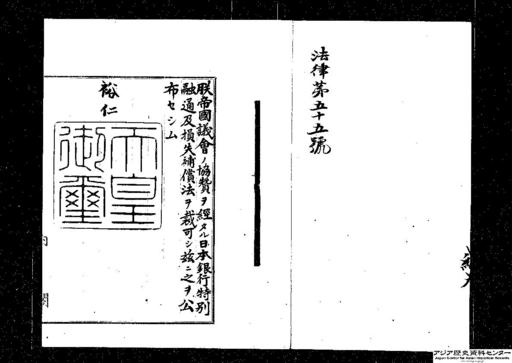 法律第五十五號
朕帝國議會ノ協贊ヲ經タル日本銀行特別
融通及損失補償法ヲ裁可シ茲ニ之ヲ公
布セシム
裕仁
天皇
御璽
内閣
アジア歴史資料センター
Japan Center for Asian Historical Records